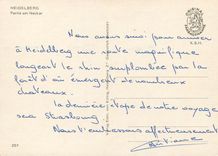 HEIDELBERG
Partie am Neckar
K.B.M.
Nous avons suivi pour arriver
à Heidelberg une route magnifique
longeant le rhin surplombée par la
forêt d'où émergent de nombreux
chateaux.
La dernière étape de notre voyage
sera Strasbourg.
Nous t'embrassons affectueusement